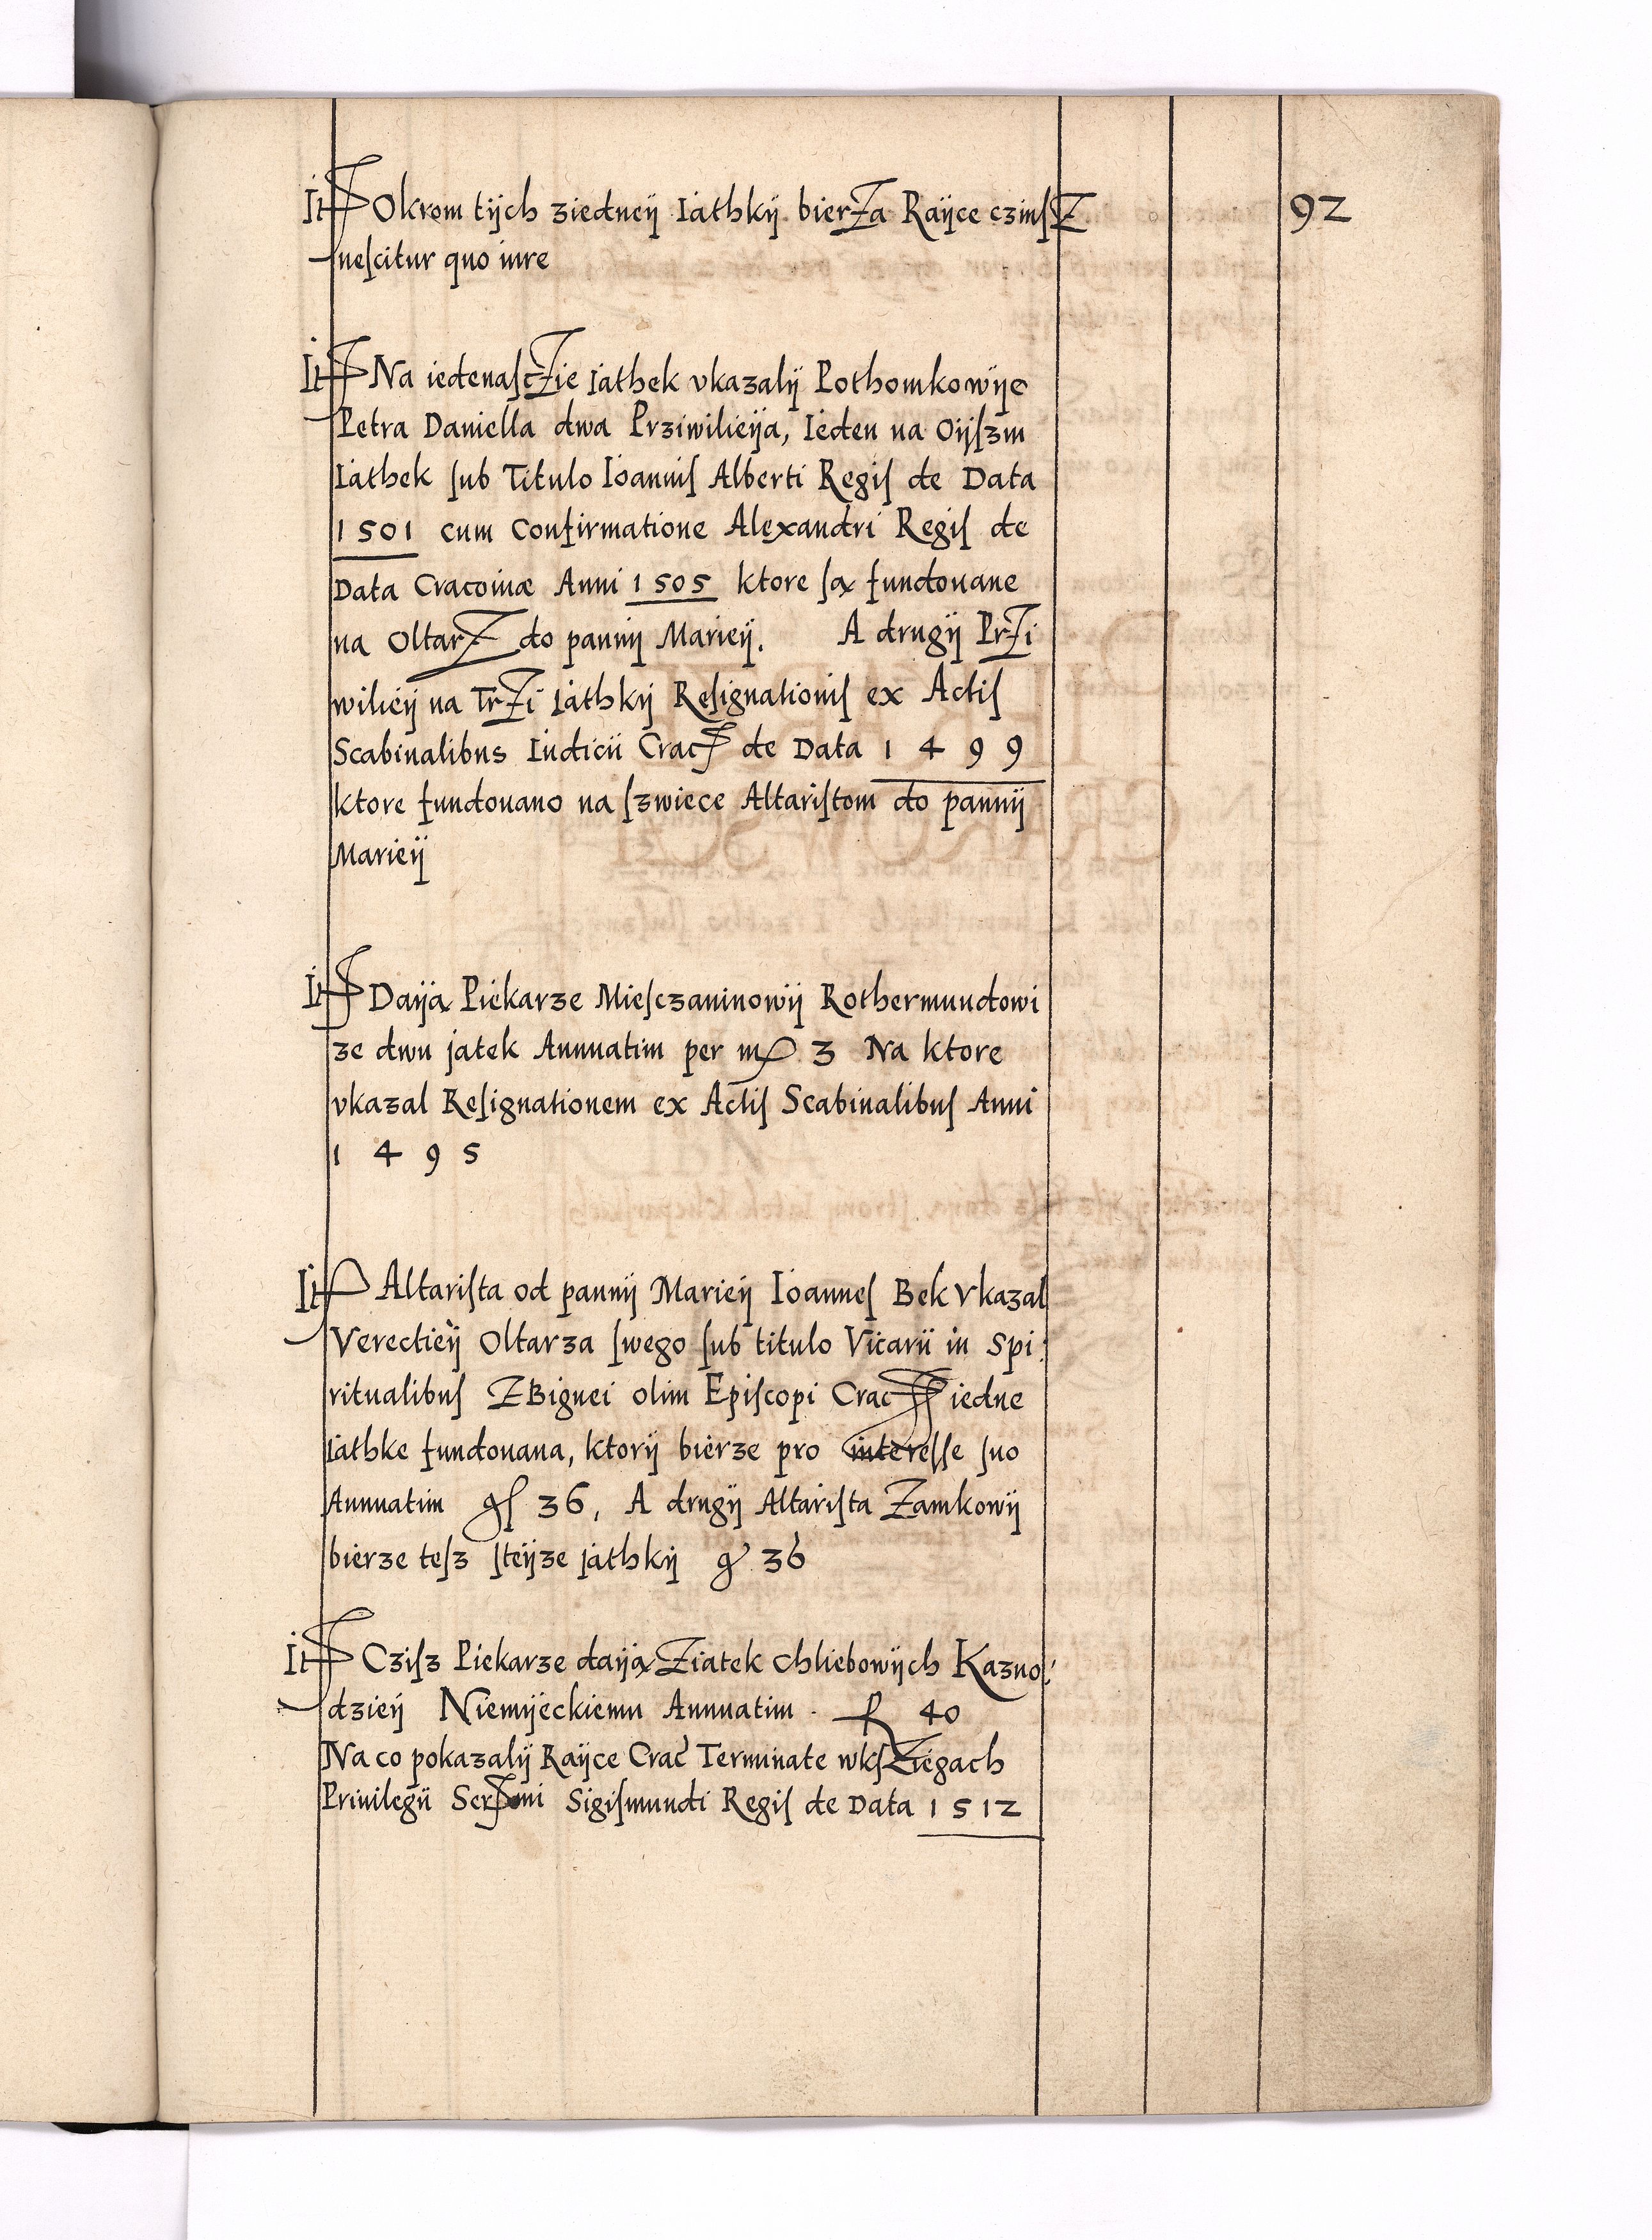 92
It Okrom tych ziedneij Iathkij bierZa Raijce czinſZ
neſcitur quo iure
It Na iedenaſcZie Iathek vkazalij Pothomkowije
Petra Daniella dwa Prziwilieija, Ieden na Oijſzm
Iathek ſub Titulo Ioannis Alberti Regiſ de Data
1501 cum Confirmatione Alexandri Regiſ de
Data Cracoviæ Anni 1505 ktore ſą fundouane
na OltarZ do pannij Marieij. A drugij PrZi
wilieij na TrZi Iathkij Reſignationiſ ex Actiſ
Scabinalibus Iudicii Crac de Data 1499
ktore fundouano na ſzwiece Altariſtom do pannij
Marieij
It Daiją Piekarze Mieſczaninowij Rothermundowi
ze dwu jatek Annuatim per m 3 Na ktore
vkazal Reſignationem ex Actiſ Scabinalibuſ Anni
1495
It Altariſta od pannij Marieij Ioanneſ Bek Vkazal
Verectieij Oltarza ſwego ſub titulo Vicarii in Spi:
ritualibuſ ZBignei olim Epiſcopi Crac iedne
Iathke fundouana, ktorij bierze pro intereſſe ſuo
Annuatim gſ 36, A drugij Altariſta Zamkowij
bierze teſz ſteijze jathkij g 36
It Cziſz Piekarze daiją Ziatek chliebowijch Kazno:
dzieij Niemijeckiemu Annuatim f 40
Na co pokazalij Raijce Crac Terminate wkſZiegach
Priuilegii Sermi Sigiſmundi Regiſ de Data 1512